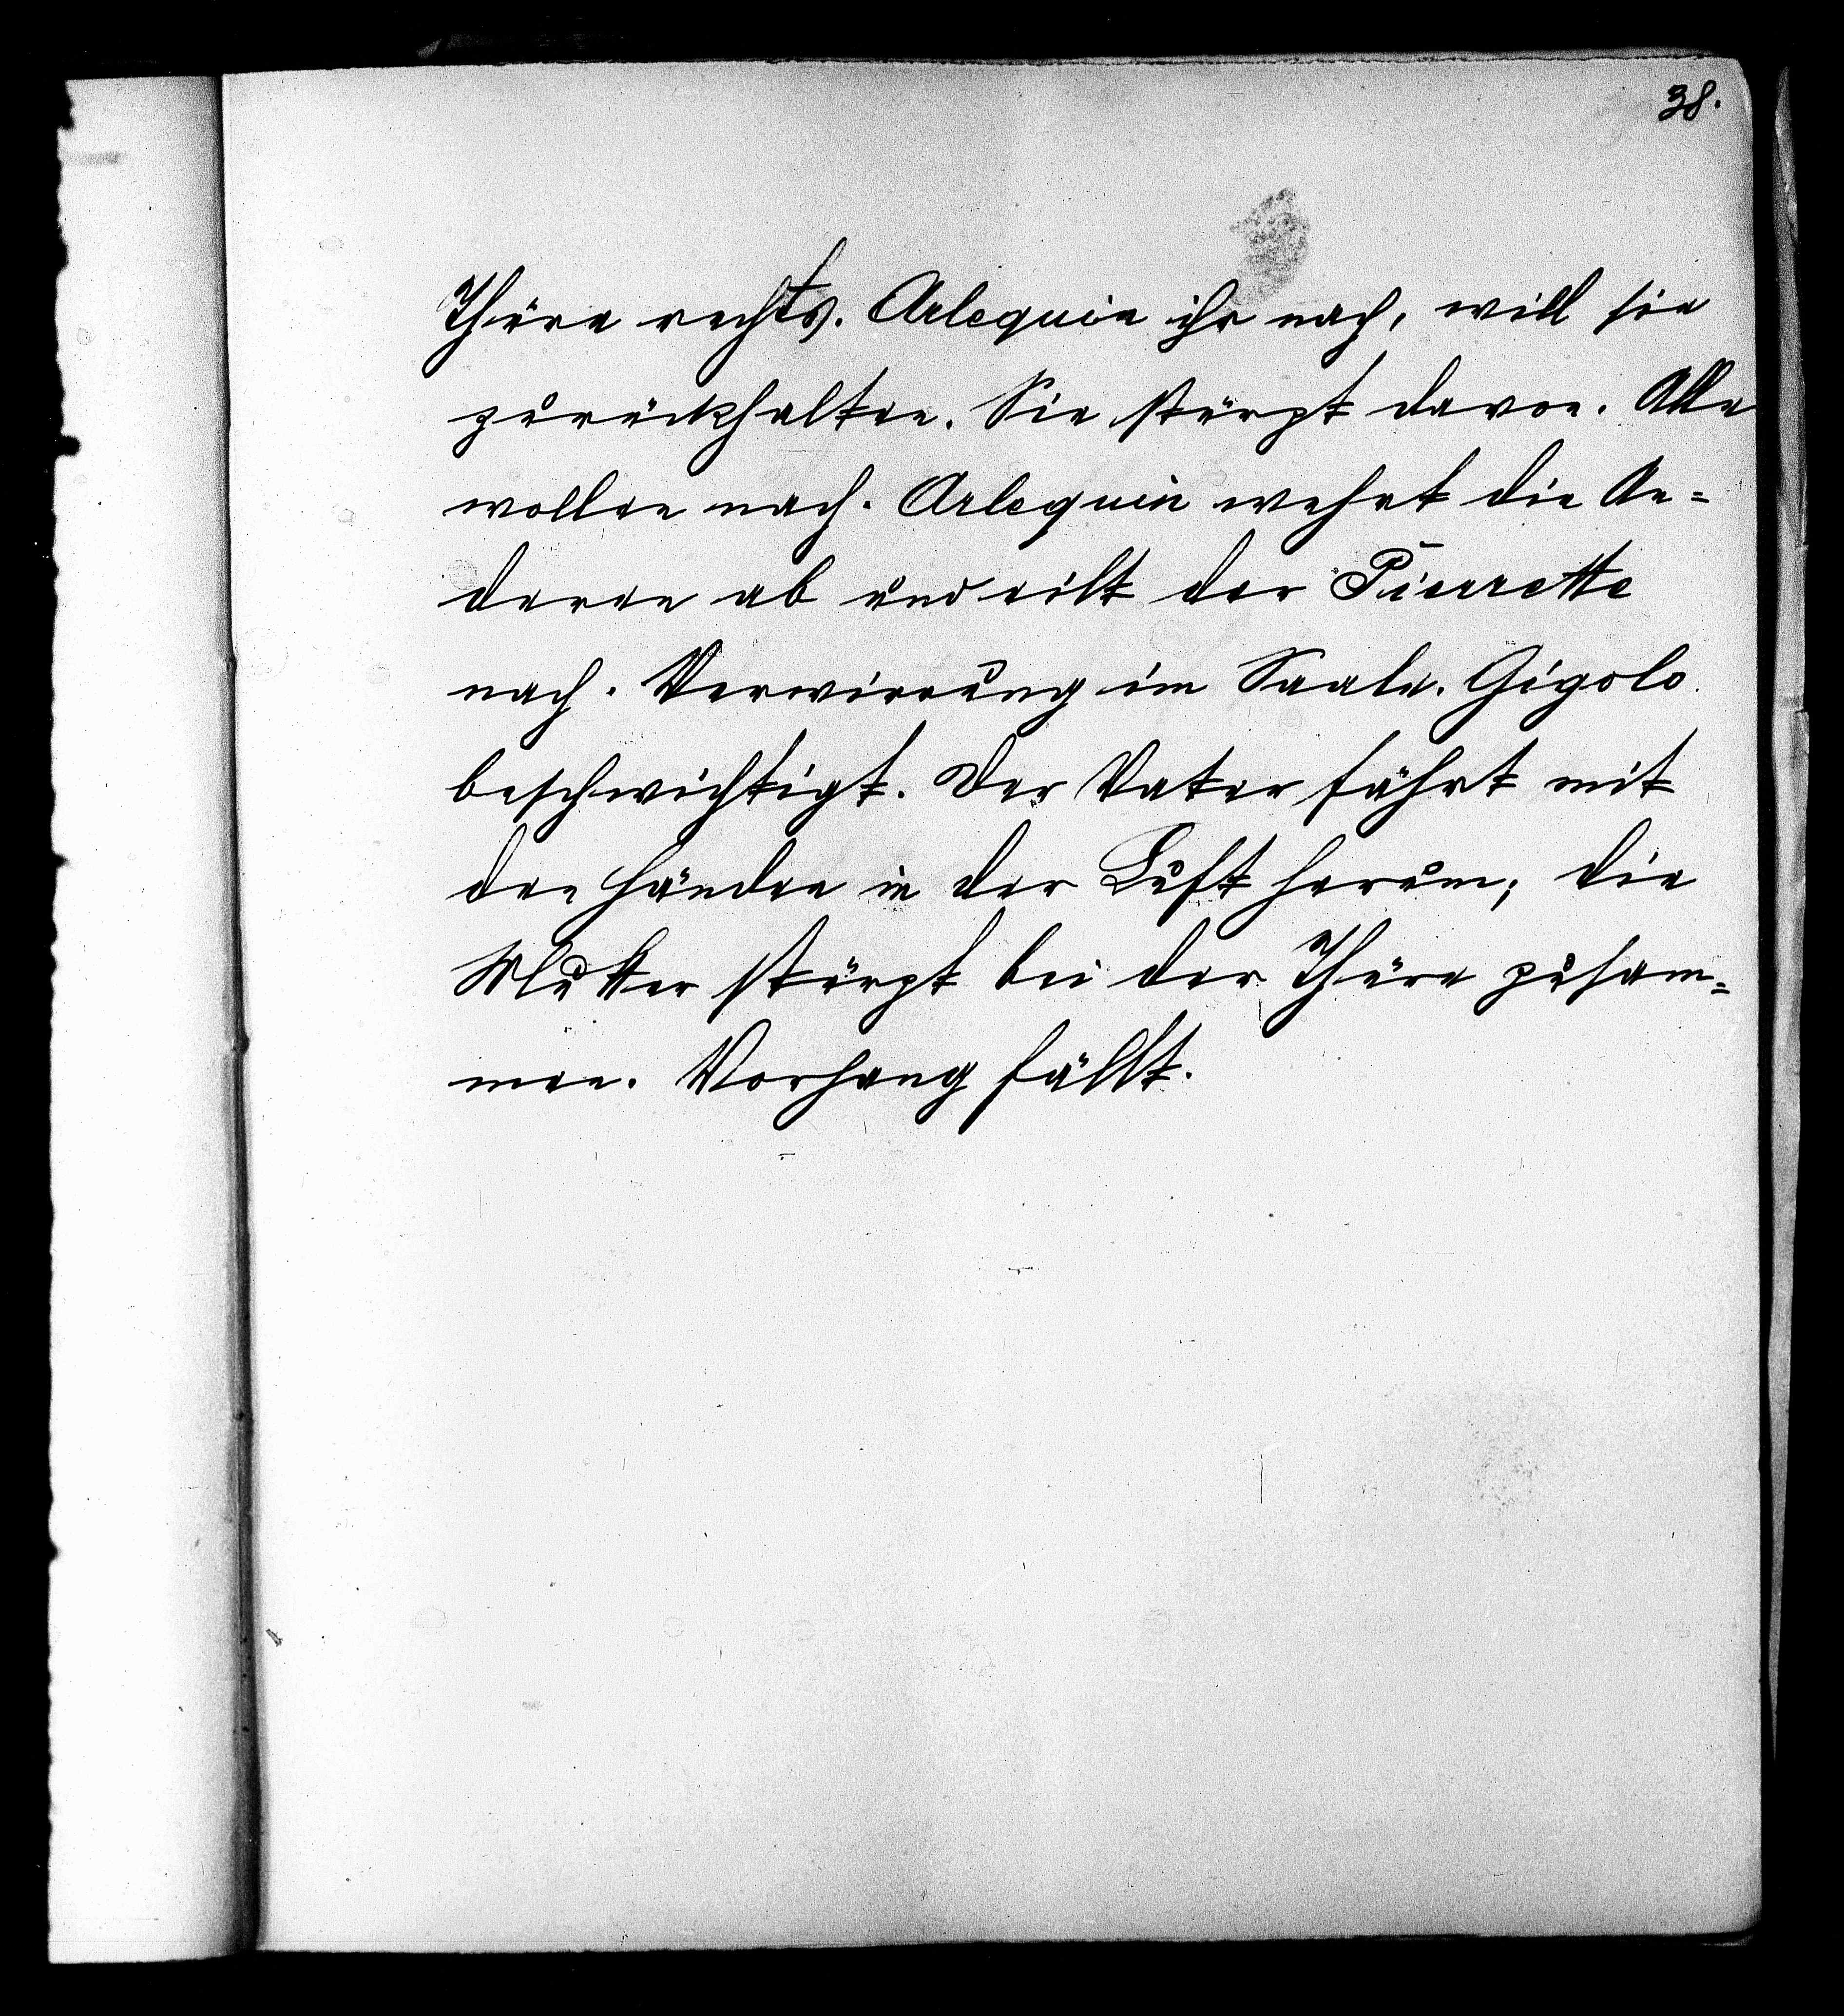 38.
Thüre rechts. Arlequin ihr nach, will sie
zurückhalten. Sie stürzt davon. Alle
wollen nach. Arlequin wehrt die An=
deren ab und eilt der Pierrette
nach. Verwirrung im Saale. Gigolo
beschwichtigt. Der Vater fährt mit
den Händen in der Luft herum; die
Mutter stürzt bei der Thüre zusam=
men. Vorhang fällt.